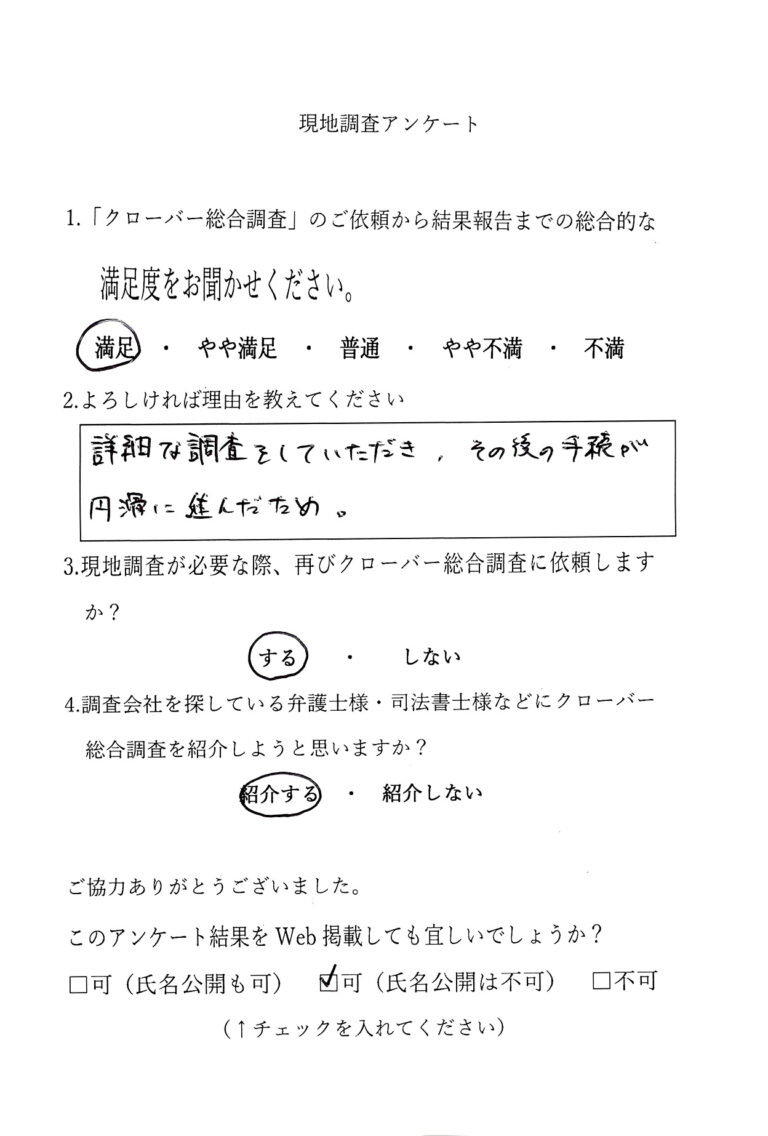 現地調査アンケート
1.「クローバー総合調査」のご依頼から結果報告までの総合的な
満足度をお聞かせください。
満足 ・ やや満足 ・ 普通 ・ やや不満 ・ 不満
2.よろしければ理由を教えてください
詳細な調査をしていただき、その後の手続が
円滑に進んだため。
3.現地調査が必要な際、再びクローバー総合調査に依頼します
か？
する ・ しない
4.調査会社を探している弁護士様・司法書士様などにクローバー
総合調査を紹介しようと思いますか？
紹介する ・ 紹介しない
ご協力ありがとうございました。
このアンケート結果をWeb掲載しても宜しいでしょうか？
□可（氏名公開も可） ☑可（氏名公開は不可） □不可
（↑チェックを入れてください）